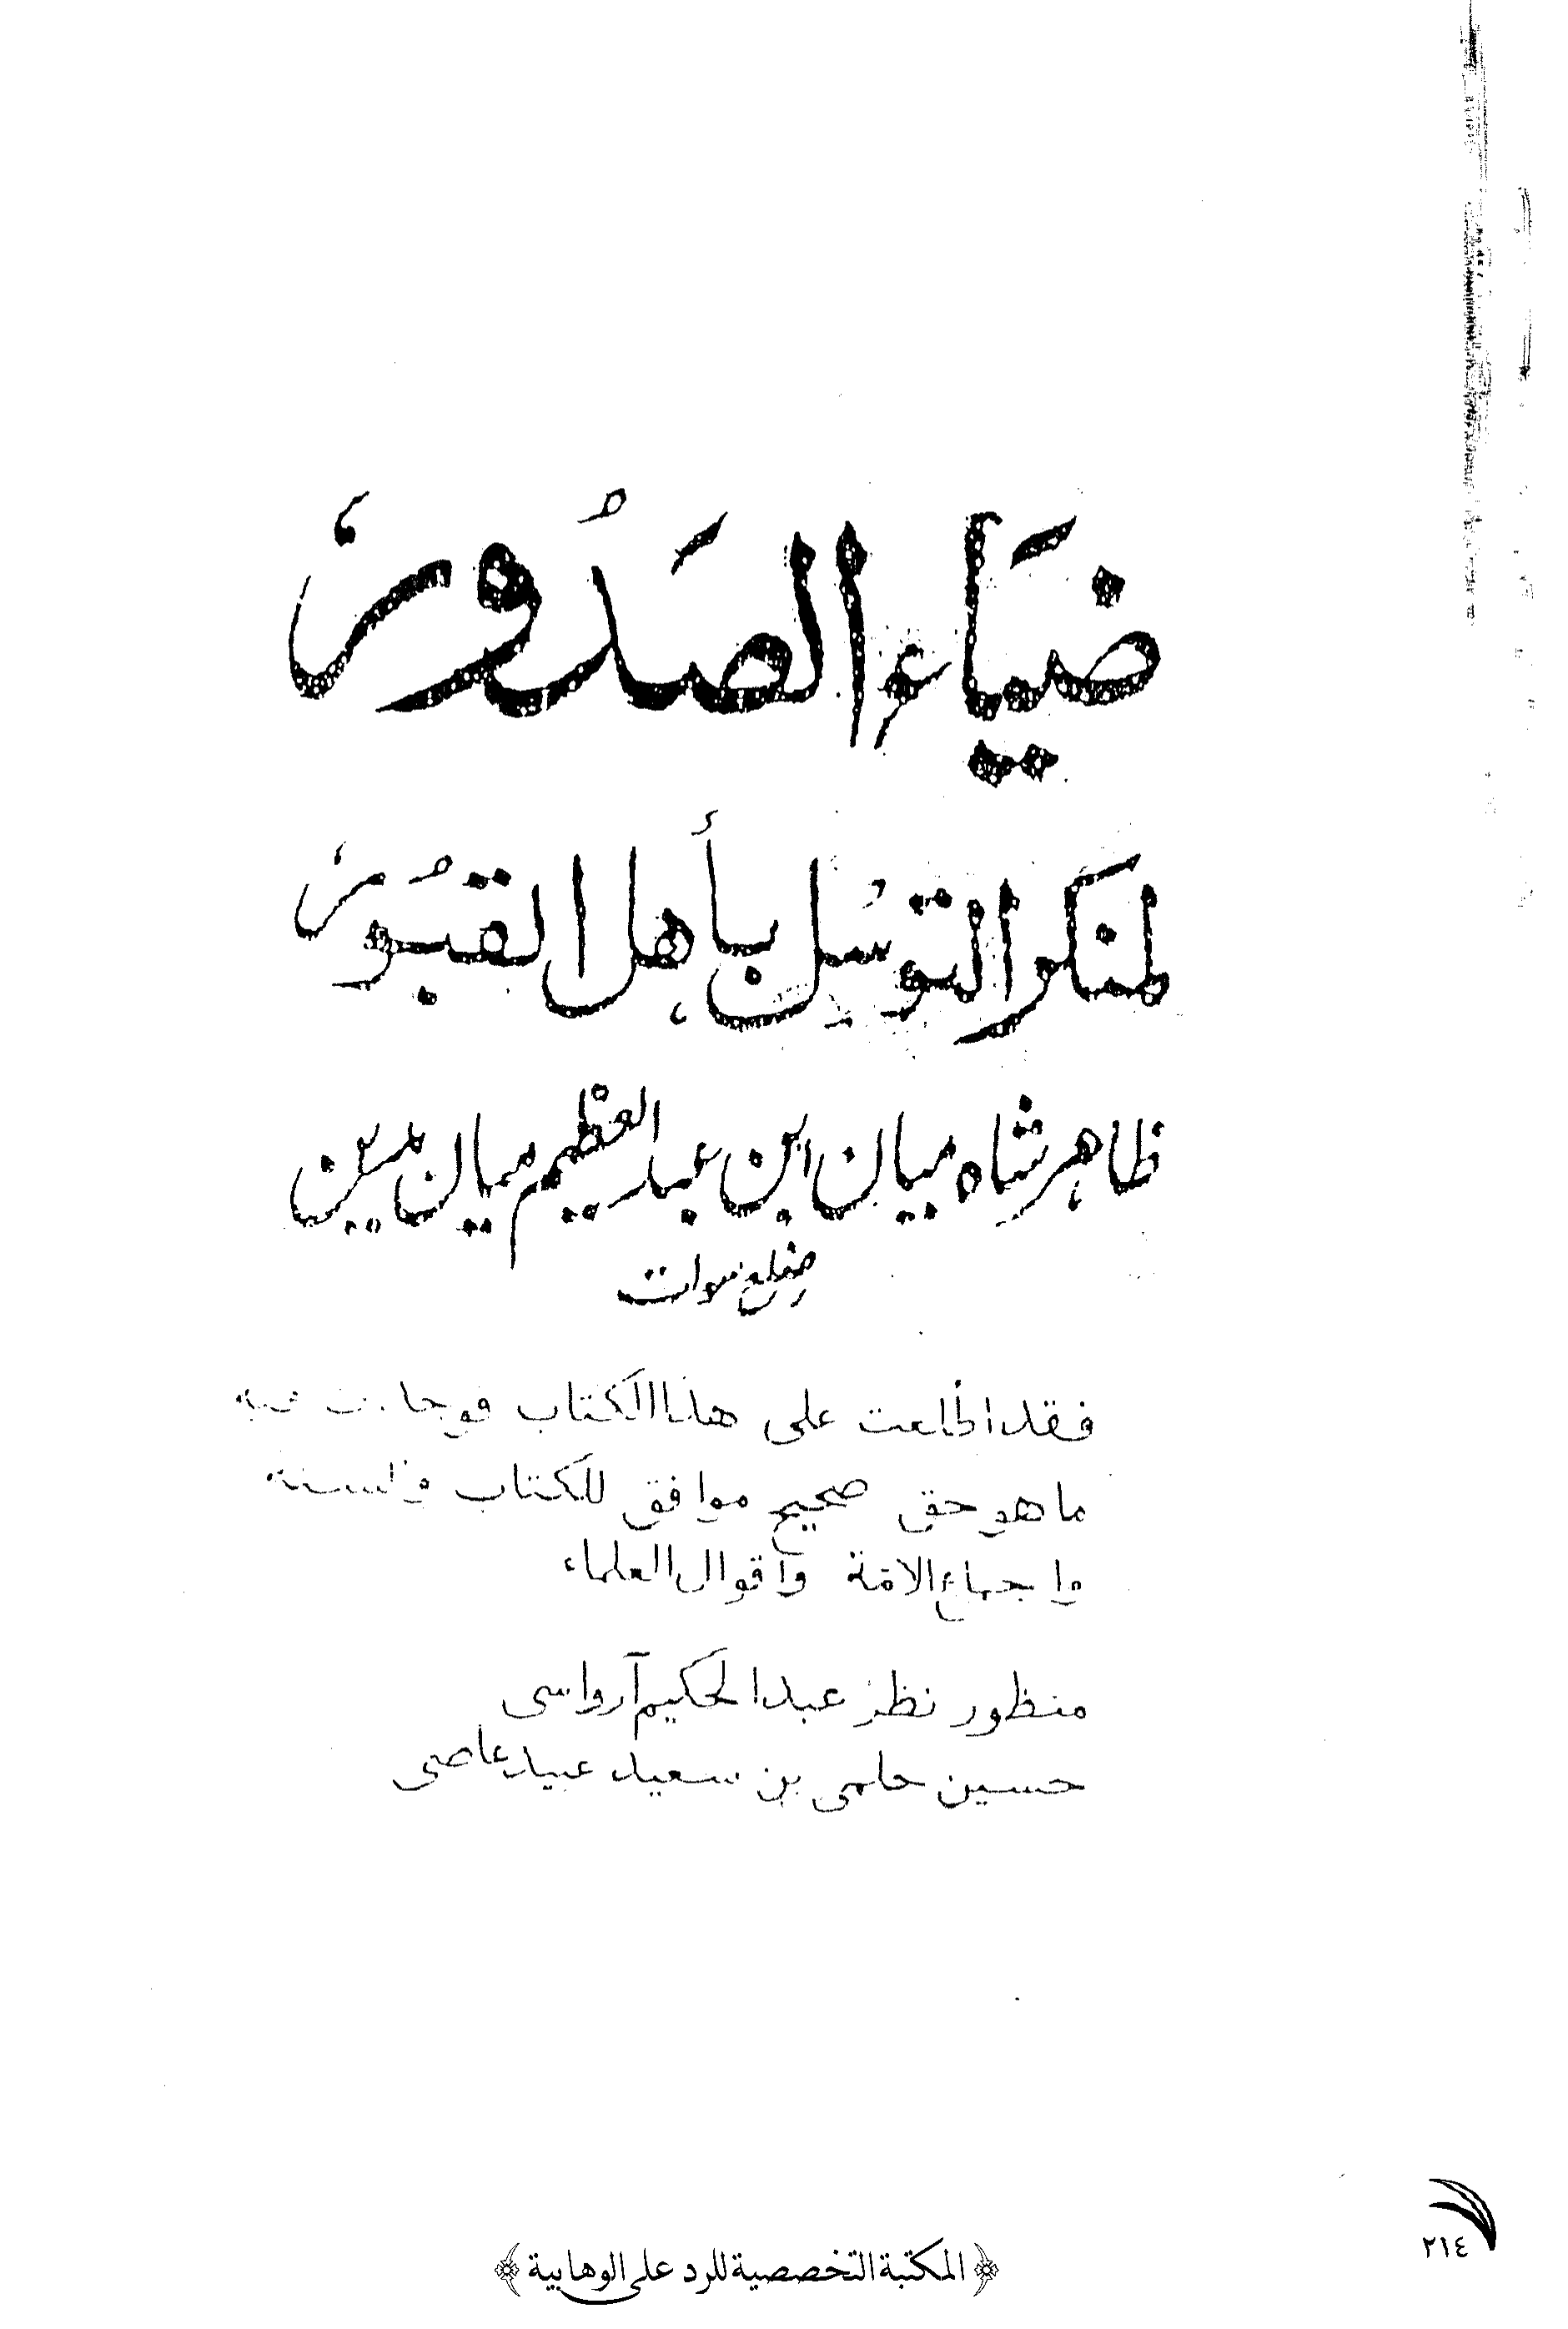 ضِيَاء الصَدُور
لمنكر التوسُل بأهل القبُور
ظاهر شاه ميان ابن عبد العظيم ميان مدين
ضلع سوات
فقد اطلعت على هذا الكتاب فوجدت فيه
ما هو حق صحيح موافق للكتاب والسنة
واجماع الامّة واقوال العلماء
منظور نظر عبد الحكيم آرواسى
حسين حلمى بن سعيد عبيد عاصى
﴿ المكتبة التخصصية للرد على الوهابية ﴾
٢١٤